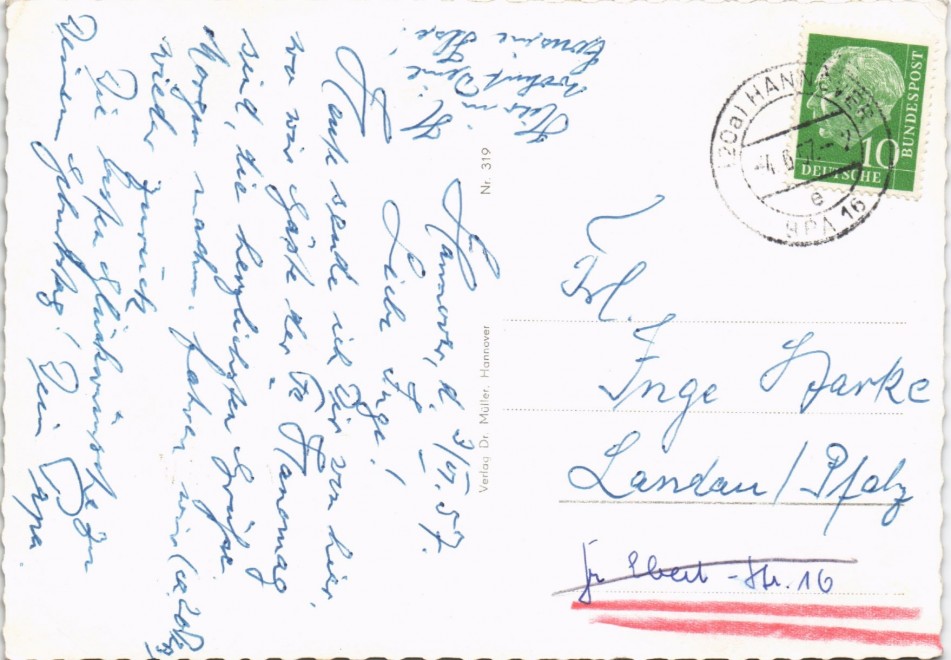 Hannover, d. 3/VI. 57.
Liebe Inge!
Heute sende ich Dir von hier,
wo wir Gäste der Fa Hanomag
sind, die herzlichsten Grüße.
Morgen nachm. fahren wir
wieder zurück
Die besten Glückwünsche zu
Deinem Geburtstag! Dein Opa
Hier in
H. wohnt Deine
Cousine
Nr. 319
Verlag Dr. Müller, Hannover
(20a) HANNOVER
-4.6.57.-
e
BPA 16
10
DEUTSCHE
BUNDESPOST
Frl.
Inge Harke
Landau/Pfalz
Fr. Ebert-Str. 16